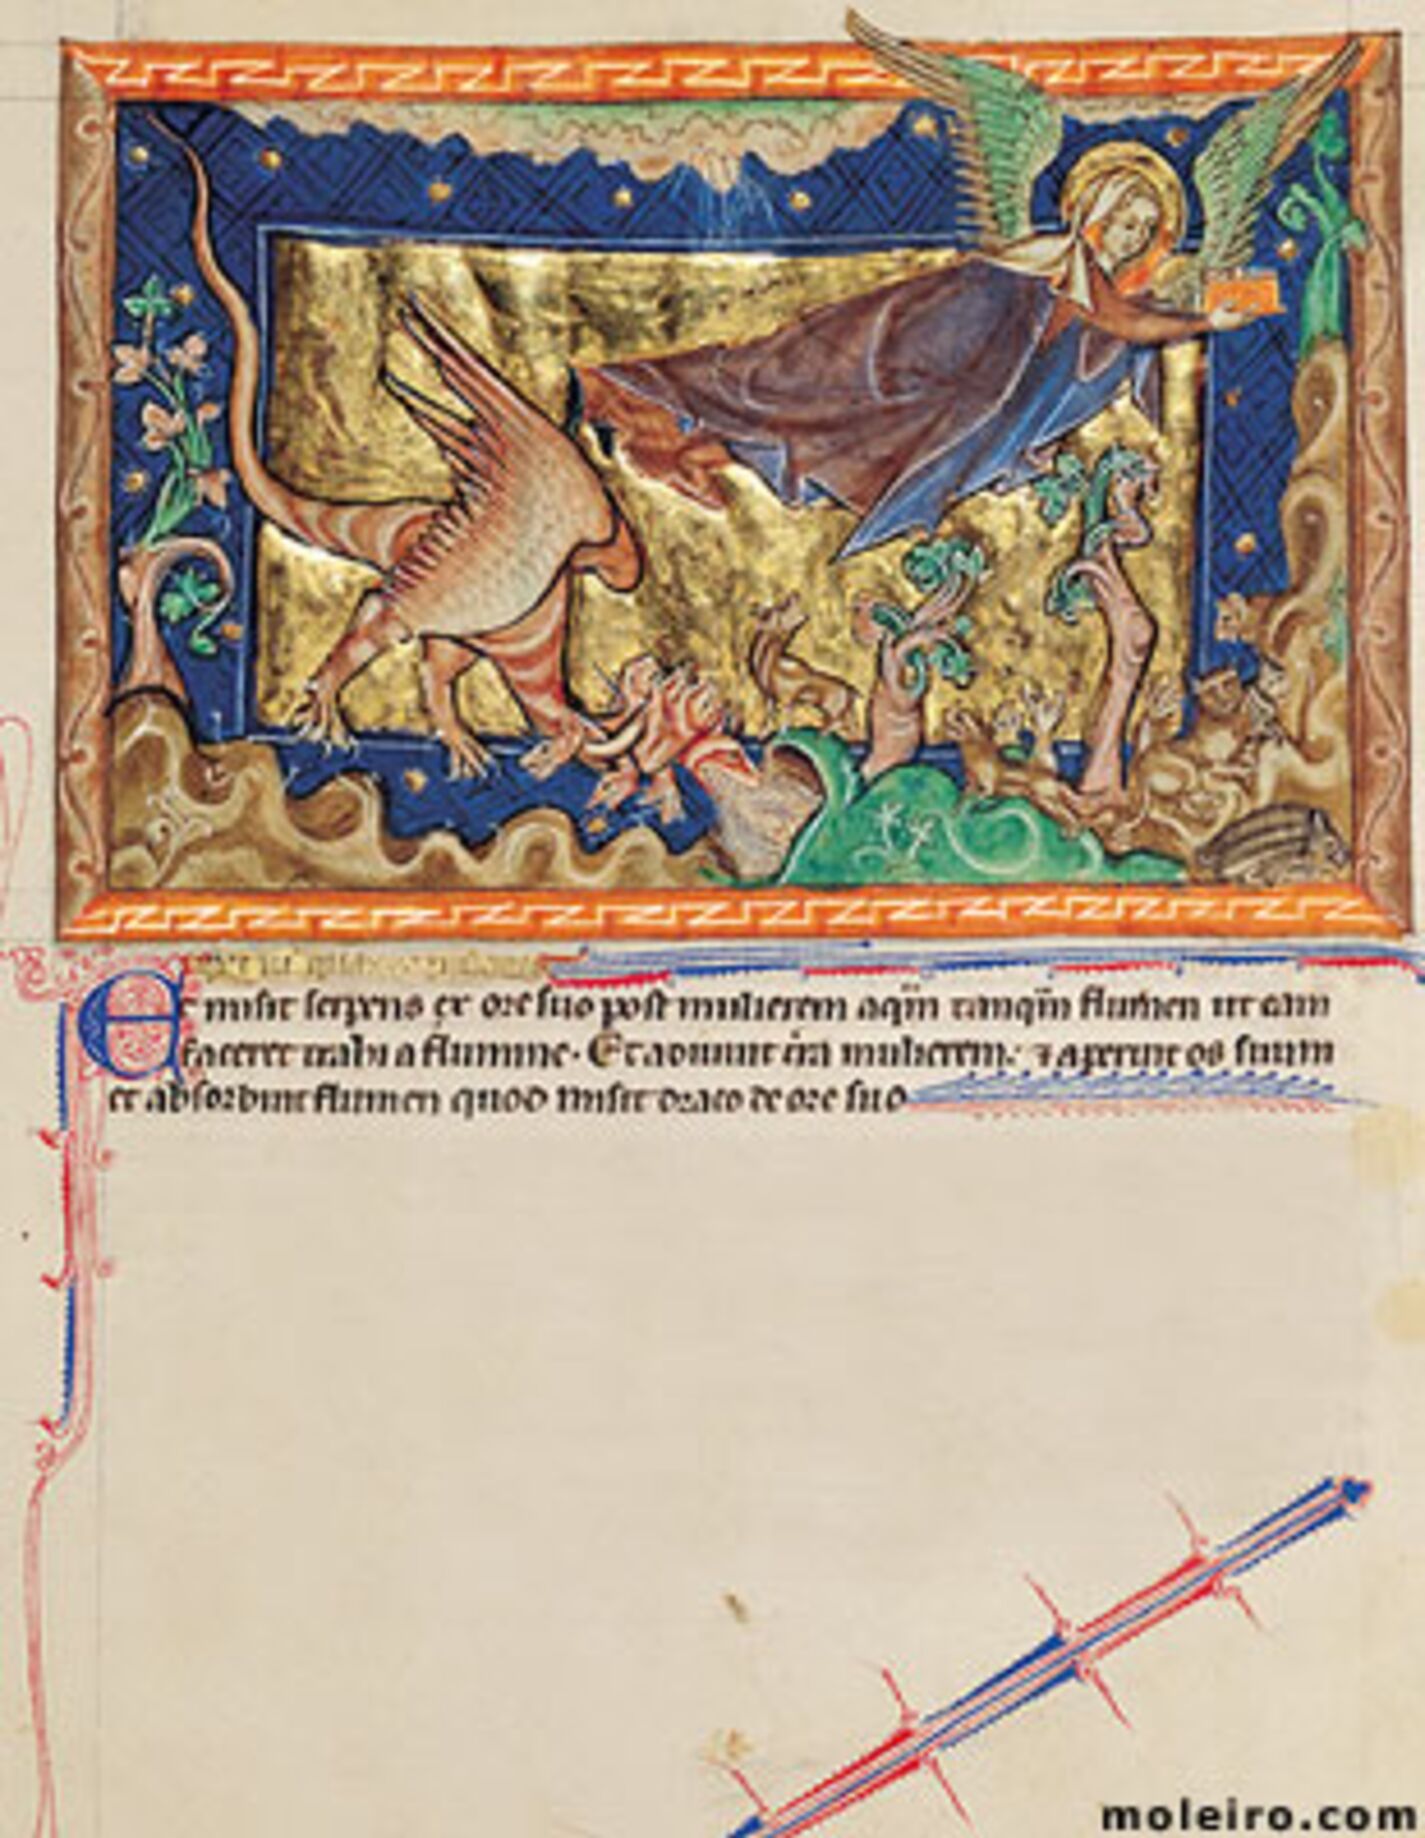 Et misit serpens ex ore suo post mulierem aq̃m tanq̃m flumen ut eam
faceret trahi a flumine. Et adiuuit t̃ra mulierem: ⁊ aperuit os suum
et absorbuit flumen quod misit draco de ore suo
moleiro.com